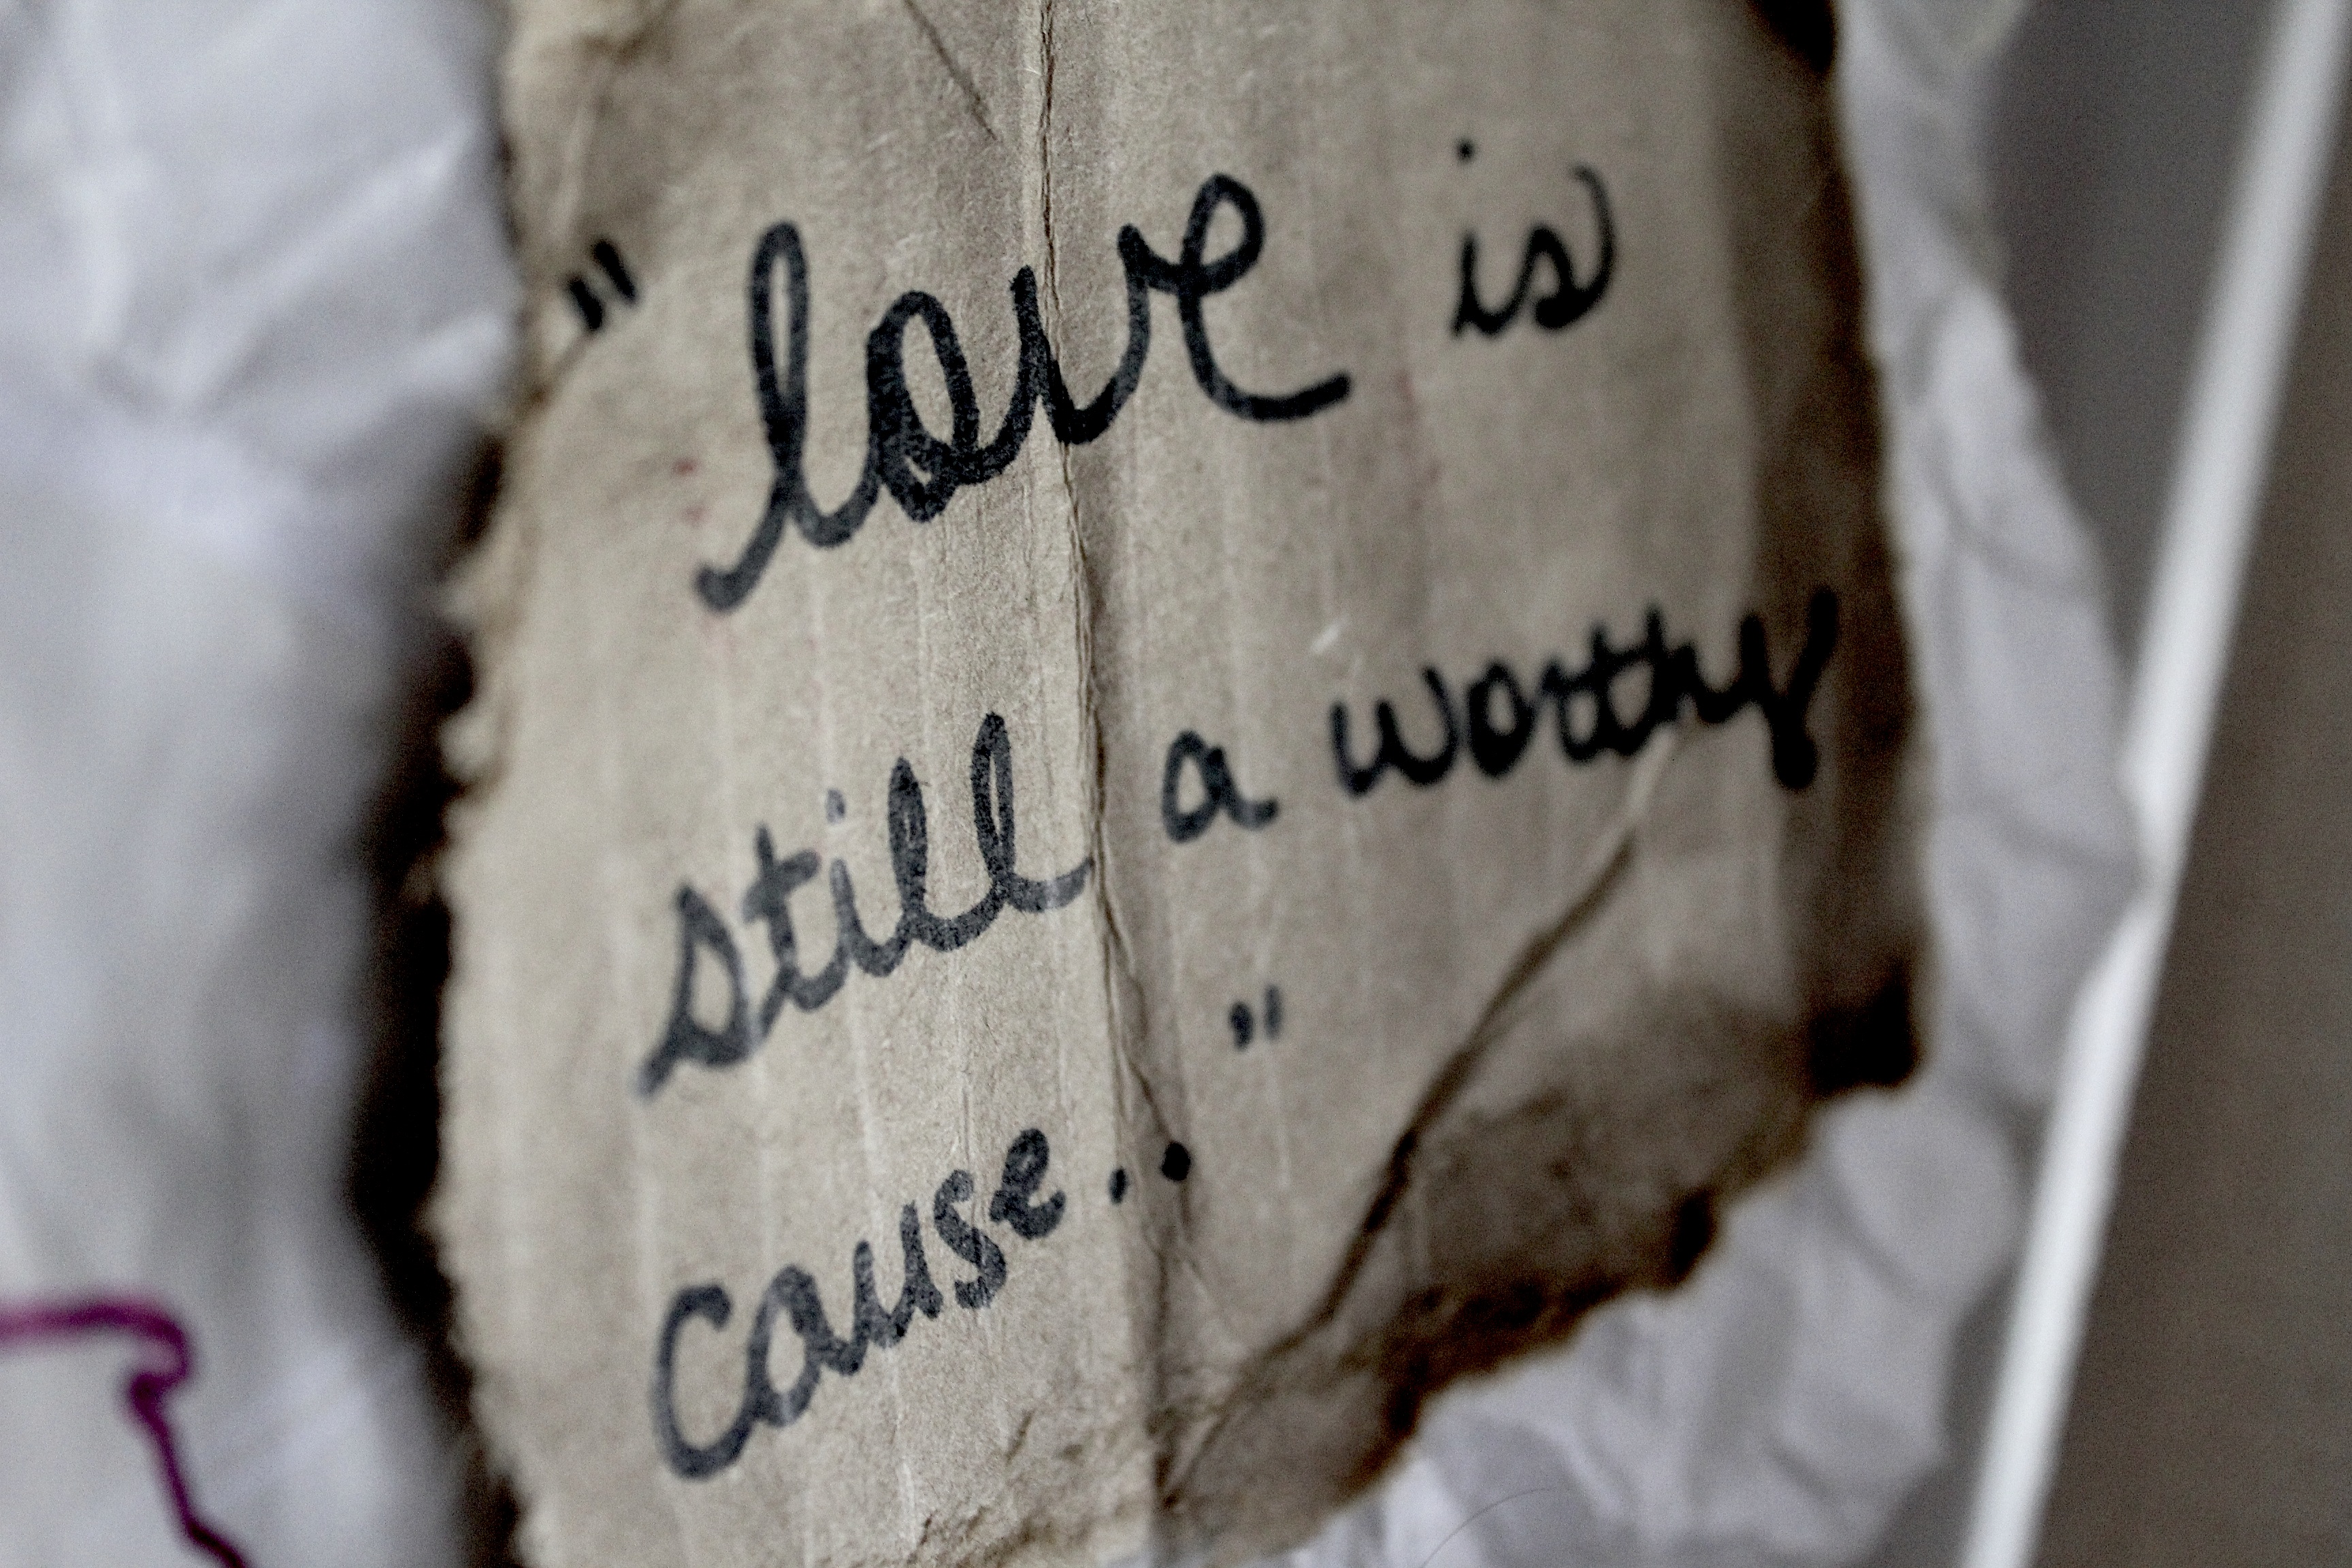 "love is
still a worthy
cause.."